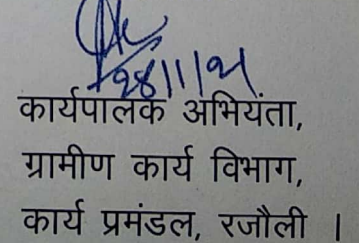 28/11/21
कार्यपालक अभियंता,
ग्रामीण कार्य विभाग,
कार्य प्रमंडल, रजौली ।